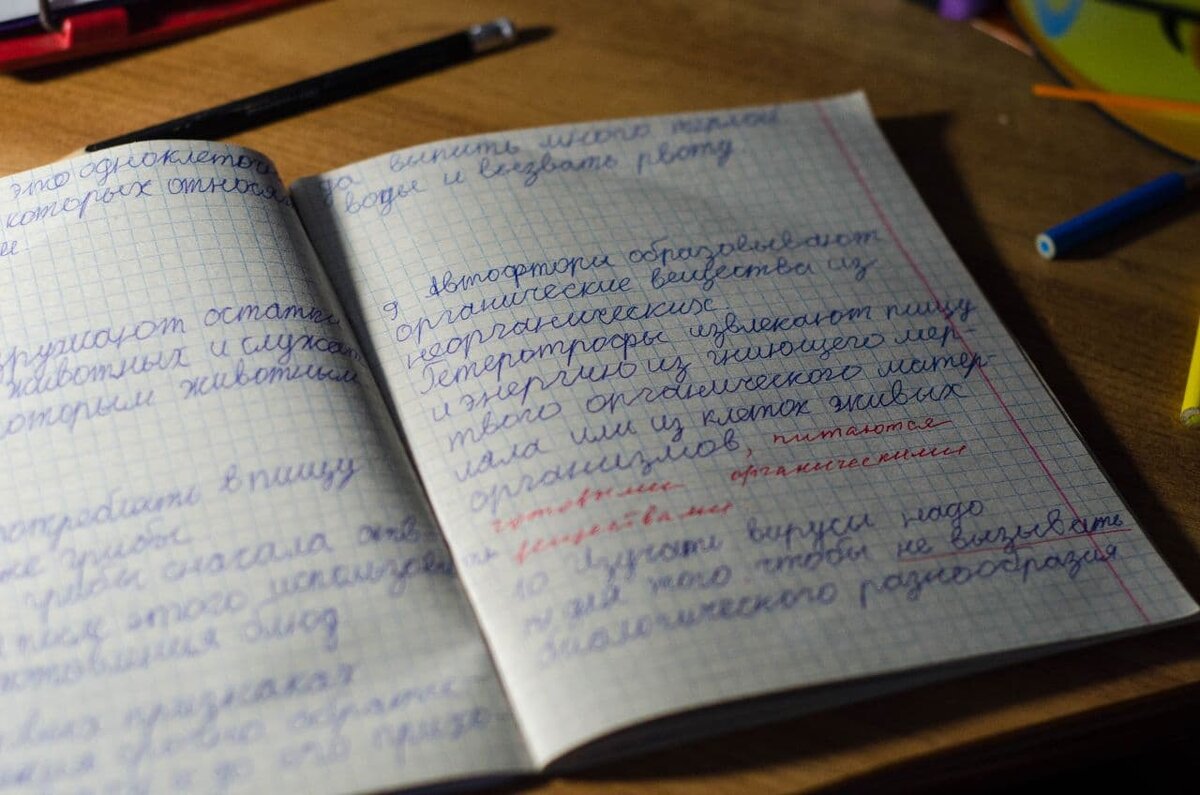 это одноклеточ
которых относя
и
ружают остатки
животных и служат
которым животным
потреблять в пищу
же грибы
грибы сначала отв-
после этого использов
товления блюд
признаках
обратис-
до его прихо-
да выпить много тёплой
воды и вызвать рвоту.
9 Автофтори образовывают
органические вещества из
неорганических
Гетеротрофы извлекают пищу
и энергию из гниющего мер-
твого органического матер-
иала или из клеток живых
организмов, питаются
готовыми органическими
веществами
10 Изучати вируси надо
для того чтобы не вызывать
биологического разнообразия